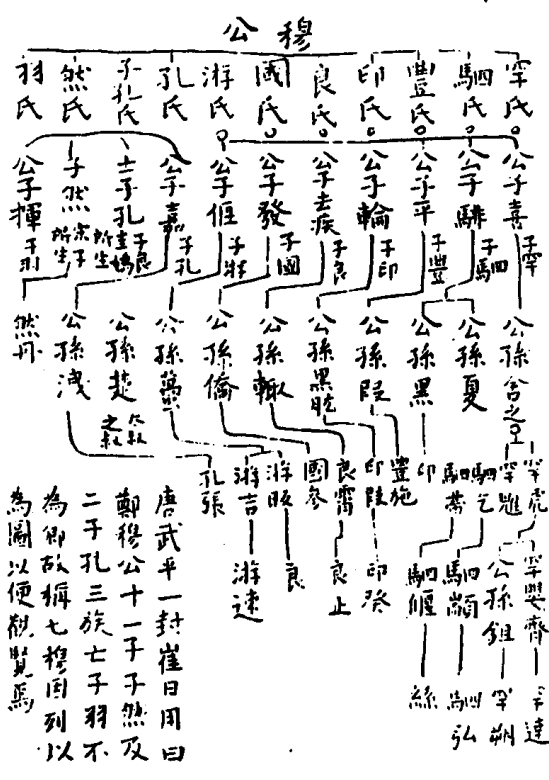 穆公
罕氏
駟氏
豐氏
印氏
良氏
國氏
游氏
孔氏
子孔氏
然氏
羽氏
公子喜 子罕
公子騑 子駟
公子平 子豐
公子輪 子印
公子去疾 子良
公子發 子國
公子偃 子游
公子嘉 子孔
士子孔 圭媯所生 子良
子然 宋子所生
公子揮 子羽
公孫舍之
公孫夏
公孫黑
公孫段
公孫黑肱
公孫輒
公孫僑
公孫蠆
公孫楚
公孫洩
然丹
罕虎
罕魋
駟乞
駟帶
印
豐施
印段
良霄
國參
游昄
游吉
孔張
罕嬰齊
公孫鉏
駟顓
駟偃
印癸
良止
良
游速
罕達
罕朔
駟弘
絲
唐武平一封崔日用曰
鄭穆公十一子子然及
二子孔三族亡子羽不
為卿故稱七穆因列以
為圖以便觀覽焉